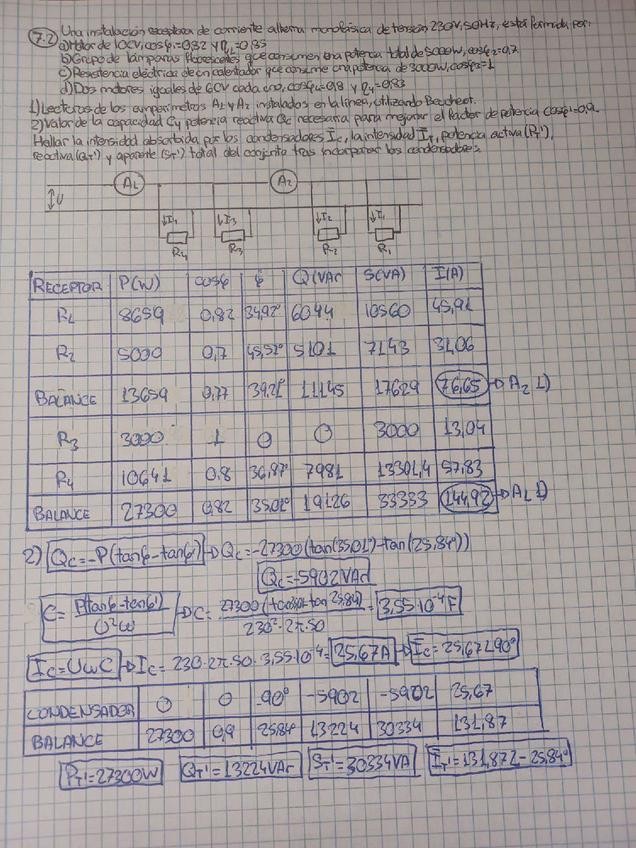 7.2 Una instalación receptora de corriente alterna monofásica de tensión 230V, 50Hz, está formada por:
a) Motor de 10CV, cosφ1=0,82 y η1=0,85
b) Grupo de lámparas fluorescentes que consumen una potencia total de 5000W, cosφ2=0,7
c) Resistencia eléctrica de un calentador que consume una potencia de 3000W, cosφ3=1
d) Dos motores iguales de 6CV cada uno, cosφ4=0,8 y η4=0,83
1) Lecturas de los amperímetros A1 y A2 instalados en la línea, utilizando Boucherot.
2) Valor de la capacidad C y potencia reactiva Qc necesaria para mejorar el factor de potencia cosφ'=0,9.
Hallar la intensidad absorbida por los condensadores Ic, la intensidad IT', potencia activa (PT'),
reactiva (QT') y aparente (ST') total del conjunto tras incorporar los condensadores.
A1 A2
U
↓I4 ↓I3 ↓I2 ↓I1
R4 R3 R2 R1
RECEPTOR P(W) cosφ φ Q(VAr S(VA) I(A)
R1 8659 0,82 34,92° 6044 10560 45,91
R2 5000 0,7 45,57° 5101 7143 31,06
BALANCE 13659 0,77 39,21° 11145 17629 76,65 → A2 1)
R3 3000 1 0 0 3000 13,04
R4 10641 0,8 36,87° 7981 13301,4 57,83
BALANCE 27300 0,82 35,01° 19126 33333 144,92 → A1 1)
2) Qc=-P(tanφ-tanφ') → Qc=-27300(tan(35,01°)-tan(25,84°))
Qc=-5902VAr
C= P(tanφ-tanφ') / U²ω → C= 27300(tan35,01-tan25,84) / 230²·2π·50 = 3,55·10⁻⁴F
Ic=UωC → Ic=230·2π·50·3,55·10⁻⁴= 25,67A → Ic=25,67∠90°
CONDENSADOR 0 0 -90° -5902 -5902 25,67
BALANCE 27300 0,9 25,84° 13224 30334 131,87
PT'=27300W QT'=13224VAr ST'=30334VA IT'=131,87∠-25,84°